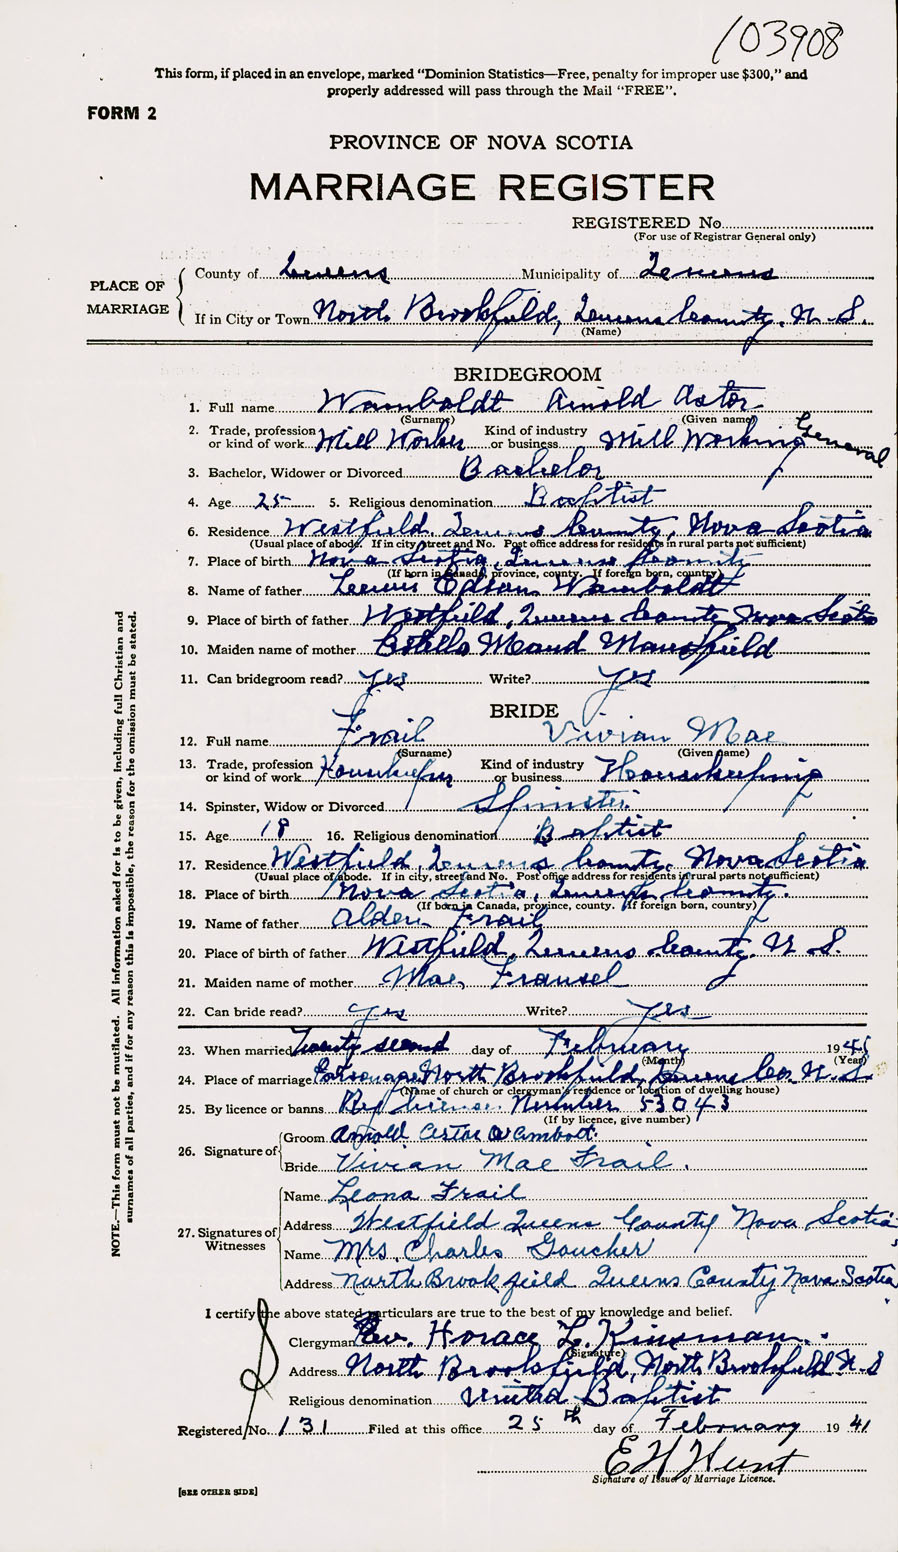 103908
This form, if placed in an envelope, marked "Dominion Statistics—Free, penalty for improper use $300," and
properly addressed will pass through the Mail "FREE".
FORM 2
PROVINCE OF NOVA SCOTIA
MARRIAGE REGISTER
REGISTERED No.
(For use of Registrar General only)
PLACE OF MARRIAGE
County of Queens Municipality of Queens
If in City or Town North Brookfield, Queens County, N.S.
(Name)
BRIDEGROOM
1. Full name Wamboldt Arnold Astor
(Surname) (Given name)
2. Trade, profession or kind of work Mill Worker Kind of industry or business Mill Working General
3. Bachelor, Widower or Divorced Bachelor
4. Age 25 5. Religious denomination Baptist
6. Residence Westfield, Queens County, Nova Scotia
(Usual place of abode. If in city street and No. Post office address for residents in rural parts not sufficient)
7. Place of birth Nova Scotia, Queens County
(If born in Canada, province, county. If foreign born, country)
8. Name of father Lewis Edson Wamboldt
9. Place of birth of father Westfield, Queens County Nova Scotia
10. Maiden name of mother Estella Maud Mansfield
11. Can bridegroom read? Yes Write? Yes
BRIDE
12. Full name Frail Vivian Mae
(Surname) (Given name)
13. Trade, profession or kind of work Housekeeper Kind of industry or business Housekeeping
14. Spinster, Widow or Divorced Spinster
15. Age 18 16. Religious denomination Baptist
17. Residence Westfield, Queens County, Nova Scotia
(Usual place of abode. If in city, street and No. Post office address for residents in rural parts not sufficient)
18. Place of birth Nova Scotia, Queens County.
(If born in Canada, province, county. If foreign born, country)
19. Name of father Alden Frail
20. Place of birth of father Westfield, Queens County, N.S.
21. Maiden name of mother Mae
22. Can bride read? Yes Write? Yes
23. When married Twenty second day of February 19
(Month) (Year)
24. Place of marriage Parsonage North Brookfield, Queens Co. N.S.
(Name of church or clergyman's residence or location of dwelling house)
25. By licence or banns By license Number 53043
(If by licence, give number)
26. Signature of
Groom Arnold Astor Wambolt.
Bride Vivian Mae Frail.
27. Signatures of Witnesses
Name Leona Frail
Address Westfield Queens County Nova Scotia
Name Mrs. Charles Goucher
Address North Brookfield Queens County Nova Scotia
I certify the above stated particulars are true to the best of my knowledge and belief.
Clergyman Rev. Horace L. Kinsman.
(Signature)
Address North Brookfield, North Brookfield N.S
Religious denomination United Baptist
Registered No. 131 Filed at this office 25th day of February 19 41
E H Hunt
Signature of Issuer of Marriage Licence.
[SEE OTHER SIDE]
NOTE.—This form must not be mutilated. All information asked for is to be given, including full Christian and
surnames of all parties, and if for any reason this is impossible, the reason for the omission must be stated.